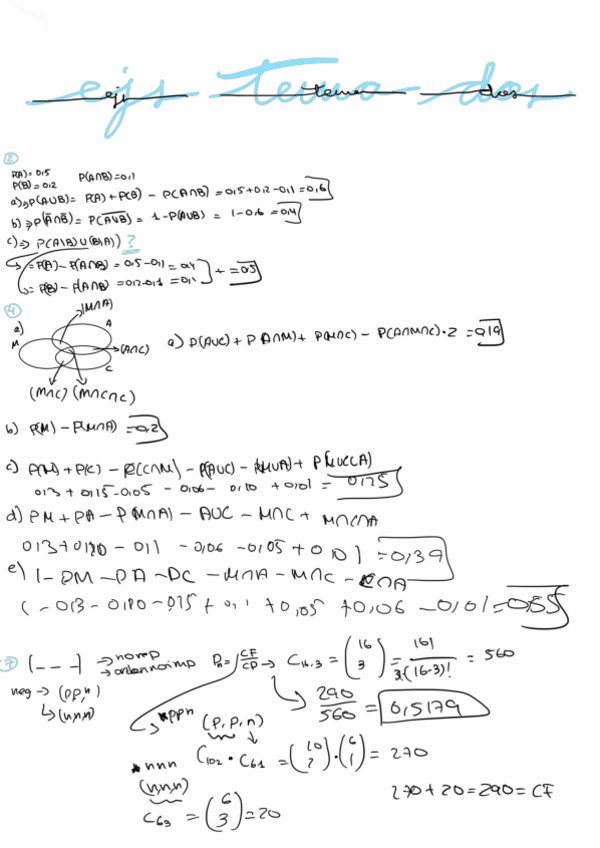 ejs tema dos
2
P(A)=0,5 P(A∩B)=0,1
P(B)=0,2
a)⇒P(A∪B)= P(A)+P(B) − P(A∩B) = 0,5+0,2−0,1=0,6
b)⇒P(A̅∩B̅)= P(A̅∪̅B̅) = 1−P(A∪B) = 1−0,6 = 0,4
c)⇒ P(A\B)∪(B\A)) ?
= P(A)−P(A∩B) = 0,5−0,1=0,4
= P(B) − P(A∩B) = 0,2−0,1 =0,1
+ =0,5
4
a)
(M∩A)
A
M
(A∩C)
C
(M∩C) (M∩C∩C)
a) P(AUC) + P A∩M) + P(M∩C) − P(A∩M∩C)·2 =0,19
b) P(M) − P(M∩A) =0,2
c) P(M)+P(C) − P(C∩M) − P(AUC) − P(MUA)+ P(MUCCA)
0,3 + 0,15−0,05 − 0,06− 0,10 +0,01 = 0,25
d) PM + PA − P(M∩A) − AUC − M∩C + M∩C∩A
0,3+0,20 − 0,1 −0,06 −0,05 + 0,01 =0,39
e) 1−PM −PA −PC − M∩A − M∩C − C∩A
1−0,3−0,20−0,15 + 0,1 +0,05 +0,06 −0,01=0,55
7 (− − −) →no rep
→orden no imp
Pn= CF/CP → C16,3 = (16 3) = 16!/3!(16−3)! = 560
neg → (p,p,n)
↳(n,n,n)
290/560 = 0,5179
*ppn (p,p,n)
C10,2 · C6,1 =(10 2)·(6 1) = 270
*nnn
(n,n,n)
C6,3 = (6 3)=20
270+20=290=CF